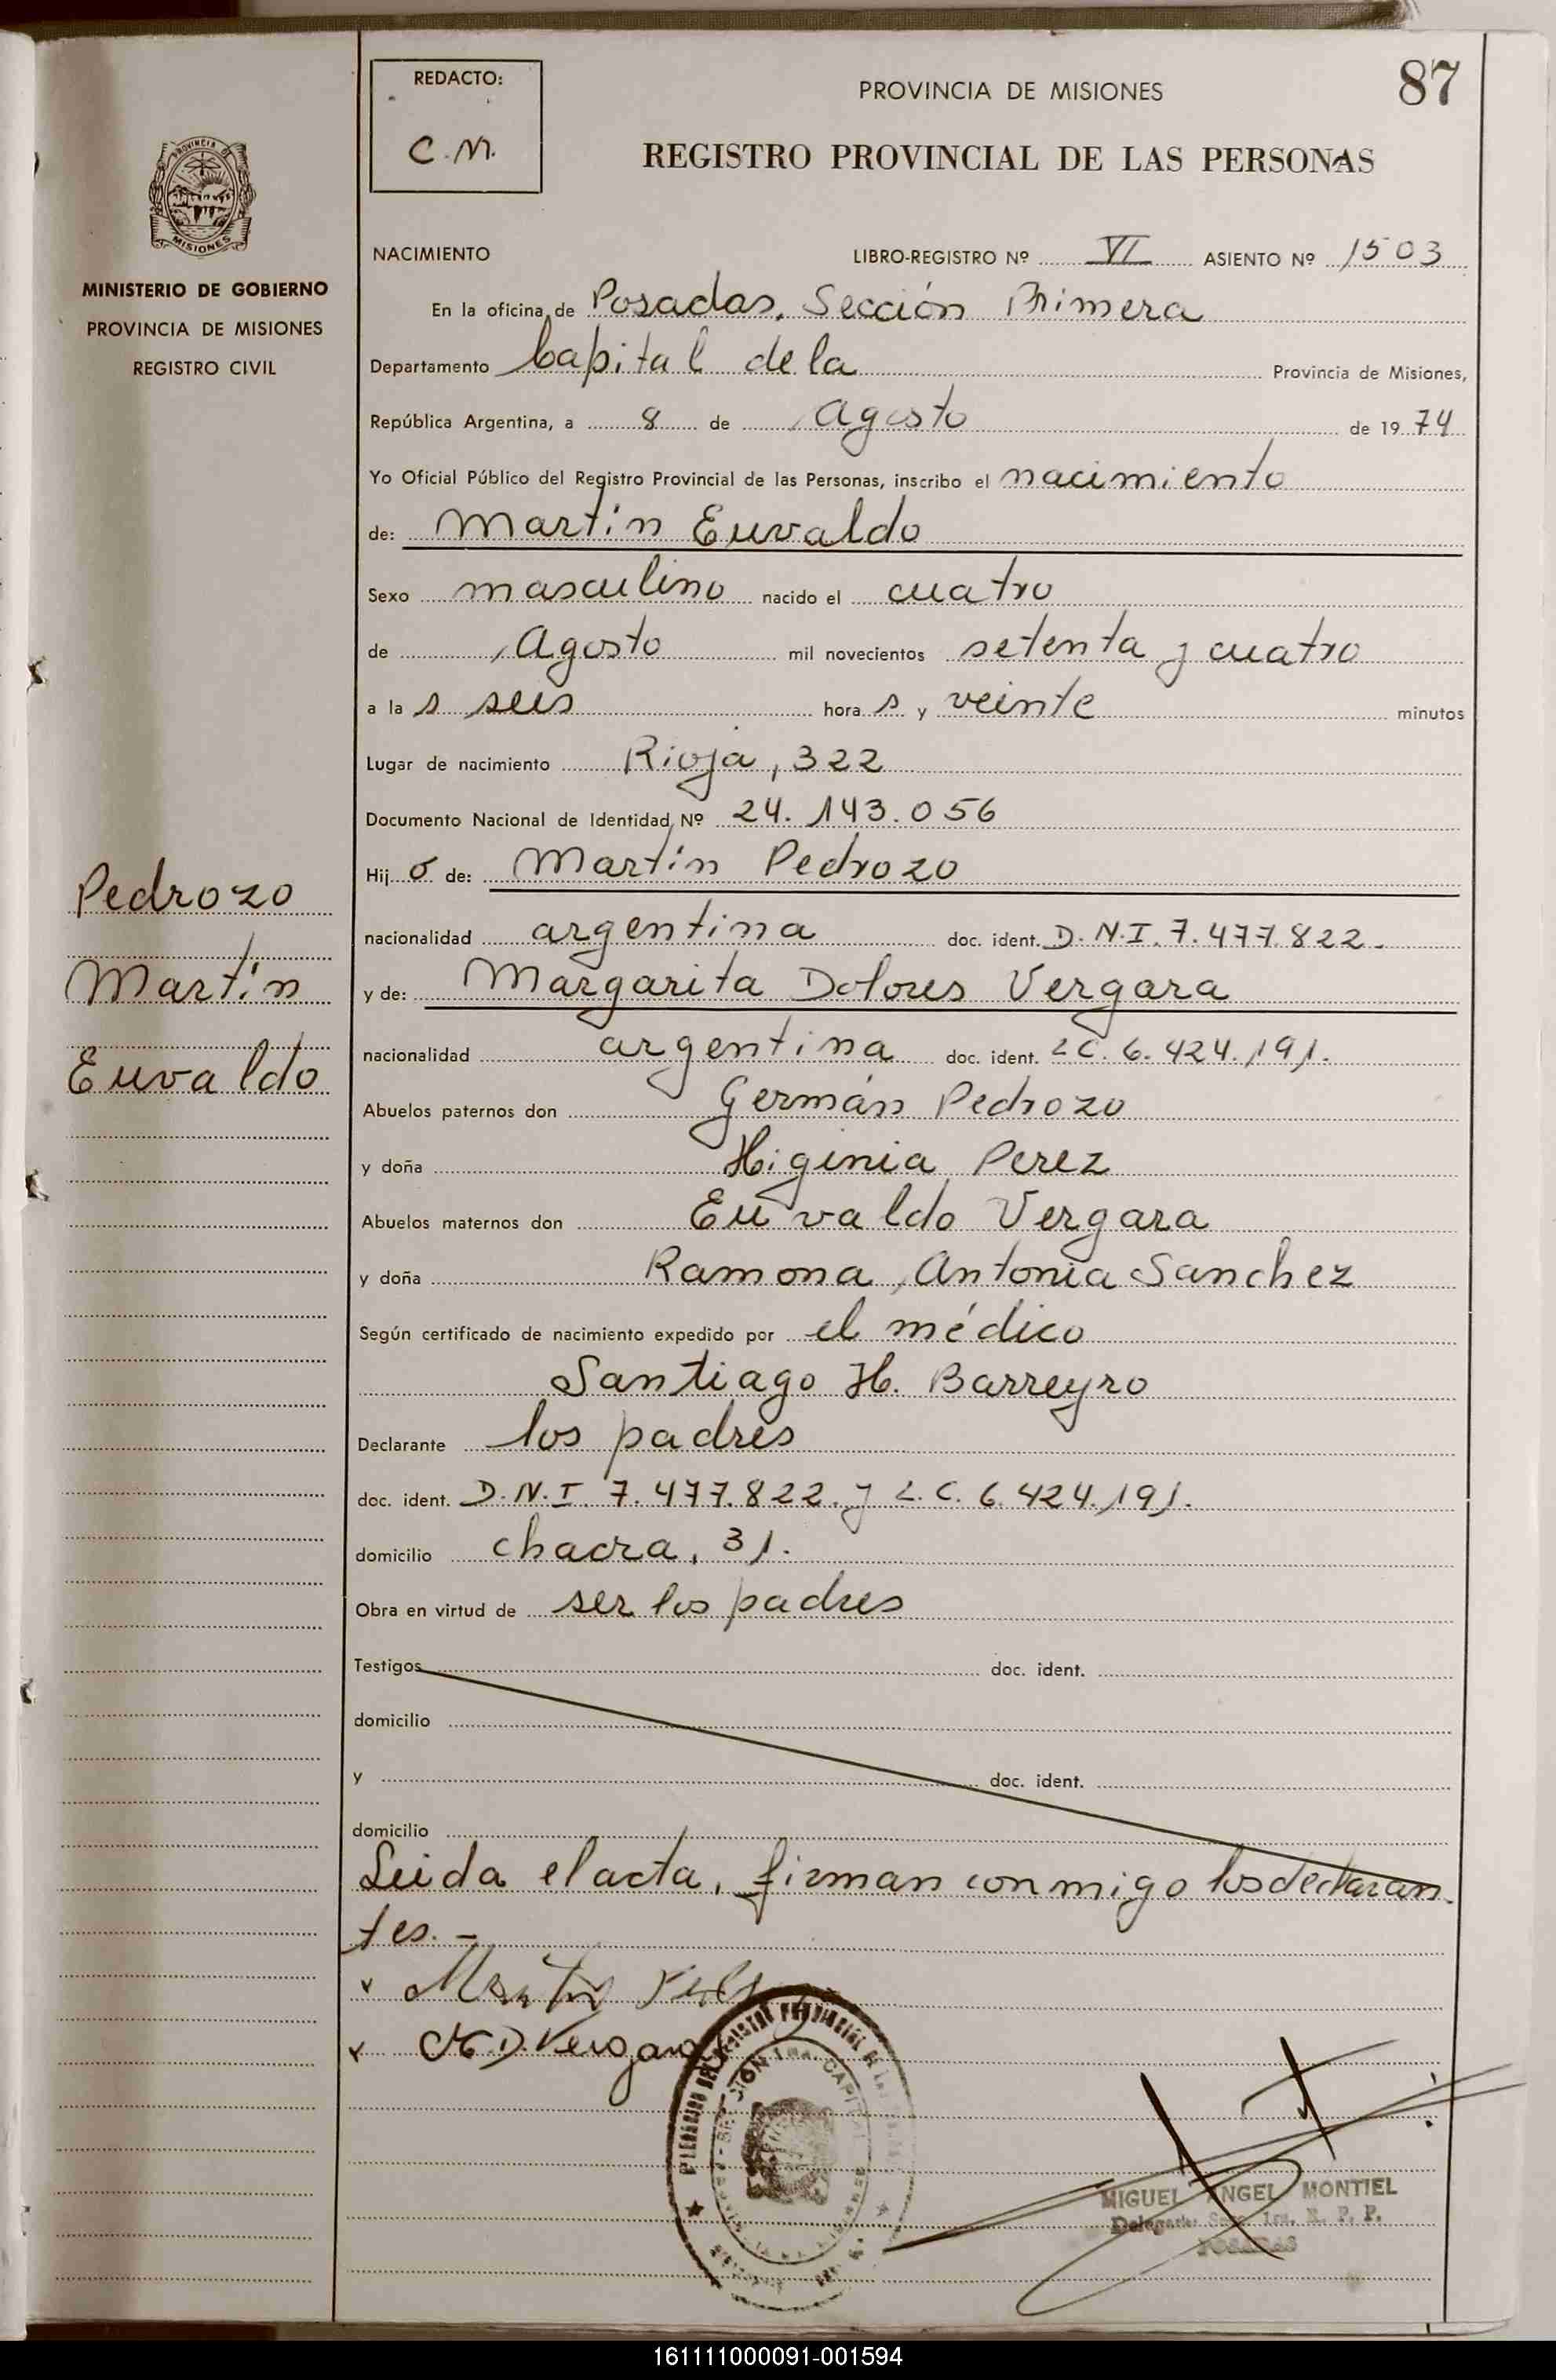 87
REDACTO:
C.M.
PROVINCIA DE MISIONES
REGISTRO PROVINCIAL DE LAS PERSONAS
PROVINCIA DE
MISIONES
MINISTERIO DE GOBIERNO
PROVINCIA DE MISIONES
REGISTRO CIVIL
NACIMIENTO LIBRO-REGISTRO Nº VI ASIENTO Nº 1503
En la oficina de Posadas. Sección Primera
Departamento Capital de la Provincia de Misiones,
República Argentina, a 8 de Agosto de 1974
Yo Oficial Público del Registro Provincial de las Personas, inscribo el nacimiento
de: Martín Euvaldo
Sexo masculino nacido el cuatro
de Agosto mil novecientos setenta y cuatro
a la s seis hora s y veinte minutos
Lugar de nacimiento Rioja, 322
Documento Nacional de Identidad, Nº 24.143.056
Hij o de: Martín Pedrozo
nacionalidad argentina doc. ident. D.N.I. 7.477.822.
y de: Margarita Dolores Vergara
nacionalidad argentina doc. ident. LC. 6.424.191.
Abuelos paternos don Germán Pedrozo
y doña Higinia Perez
Abuelos maternos don Euvaldo Vergara
y doña Ramona Antonia Sanchez
Según certificado de nacimiento expedido por el médico
Santiago H. Barreyro
Declarante los padres
doc. ident. D.N.I. 7.477.822. y L.C. 6.424.191.
domicilio chacra, 31.
Obra en virtud de ser los padres
Testigos doc. ident.
domicilio
y doc. ident.
domicilio
Leida el acta, firman conmigo los declaran
tes. -
Pedrozo
Martín
Euvaldo
Martín
M D. Vergara
MIGUEL ANGEL MONTIEL
Secc. 1ra. R. P. P.
POSADAS
161111000091-001594